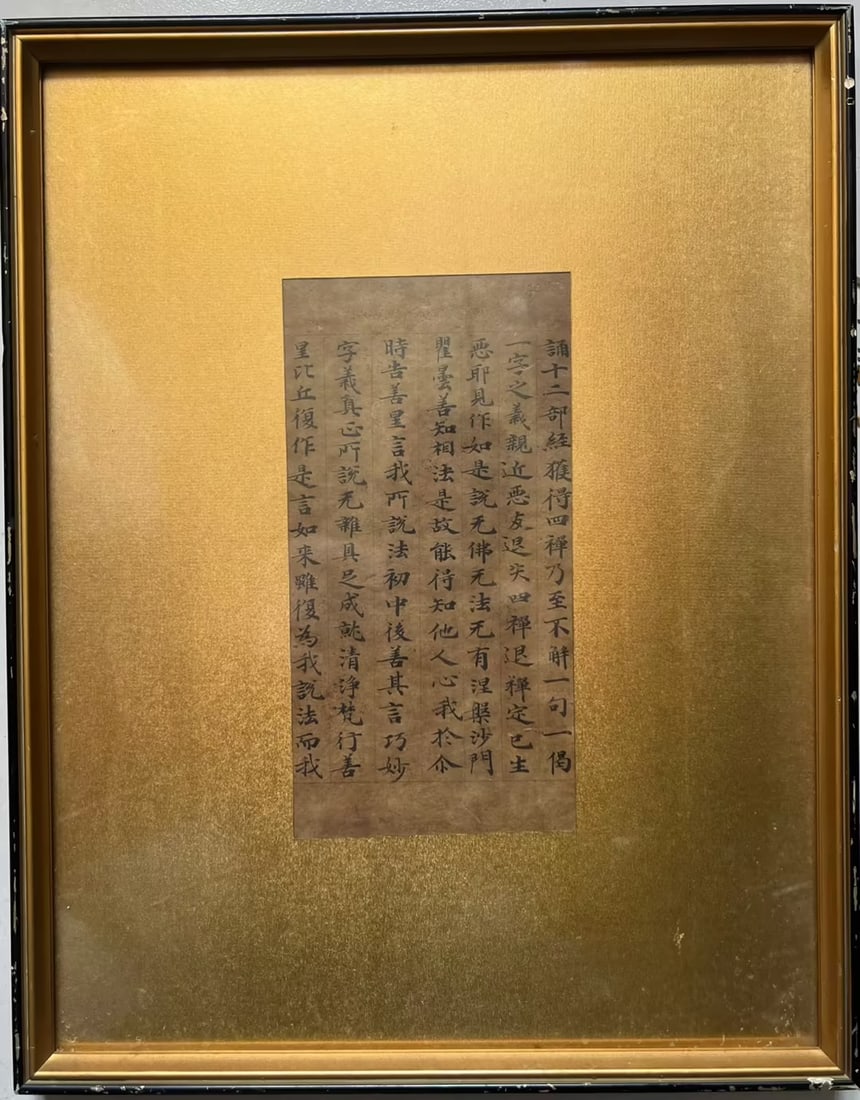 誦十二部經獲得四禪乃至不解一句一偈
一字之義親近惡友退失四禪退禪定已生
惡耶見作如是說无佛无法无有涅槃沙門
瞿曇善知相法是故能得知他人心我於尒
時告善星言我所說法初中後善其言巧妙
字義真正所說无雜具足成就清淨梵行善
星比丘復作是言如来雖復為我說法而我